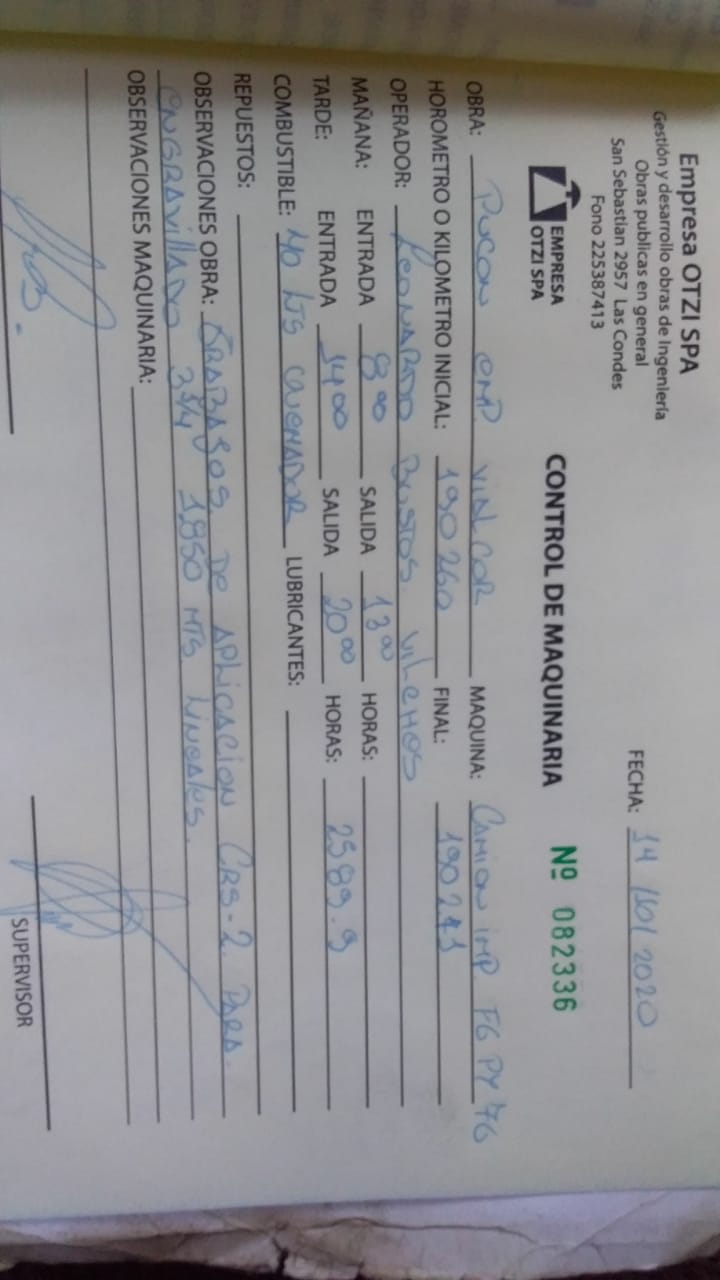 Empresa OTZI SPA
Gestión y desarrollo obras de Ingeniería
Obras publicas en general
San Sebastian 2957 Las Condes
Fono 225387413
FECHA: 14/10/2020
EMPRESA
OTZI SPA
CONTROL DE MAQUINARIA Nº 082336
OBRA: PUCON EMP VILCOR MAQUINA: CAMION IMP. FG PY 76
HOROMETRO O KILOMETRO INICIAL: 190260 FINAL: 190271
OPERADOR: LEONARDO BUSTOS VILCHES
MAÑANA: ENTRADA 8 00 SALIDA 13 00 HORAS:
TARDE: ENTRADA 14 00 SALIDA 20 00 HORAS: 2589.9
COMBUSTIBLE: 40 LTS QUEMADOR LUBRICANTES:
REPUESTOS:
OBSERVACIONES OBRA: TRABAJOS DE APLICACION CRS-2 PARA
ENGRAVILLADO 3 3/4 1.850 MTS LINEALES.
OBSERVACIONES MAQUINARIA:
SUPERVISOR